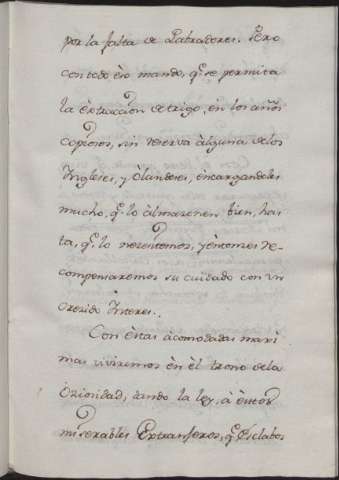 por la falta de Labradores. Pero
con todo èso mando, q.e se permita
la èxtraccion de trigo, èn los años
copiosos, sin reserva àlguna de los
Ingleses, y Olandeses, encargandoles
mucho, q.e lo àlmacenen bien, has
ta, q.e lo necesitemos, y èntonces re-
compensaremos su cuidado con un
crecido Interes.
Con èstas acomodadas maxi
mas viviremos èn èl trono de la
Ociosidad, dando la ley, à èstos
miserables Extranjeros, q.e Esclabos